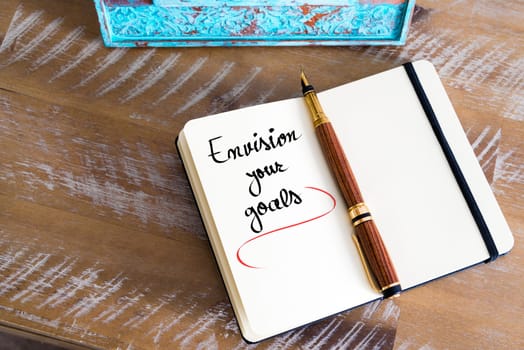 Envision
your
goals